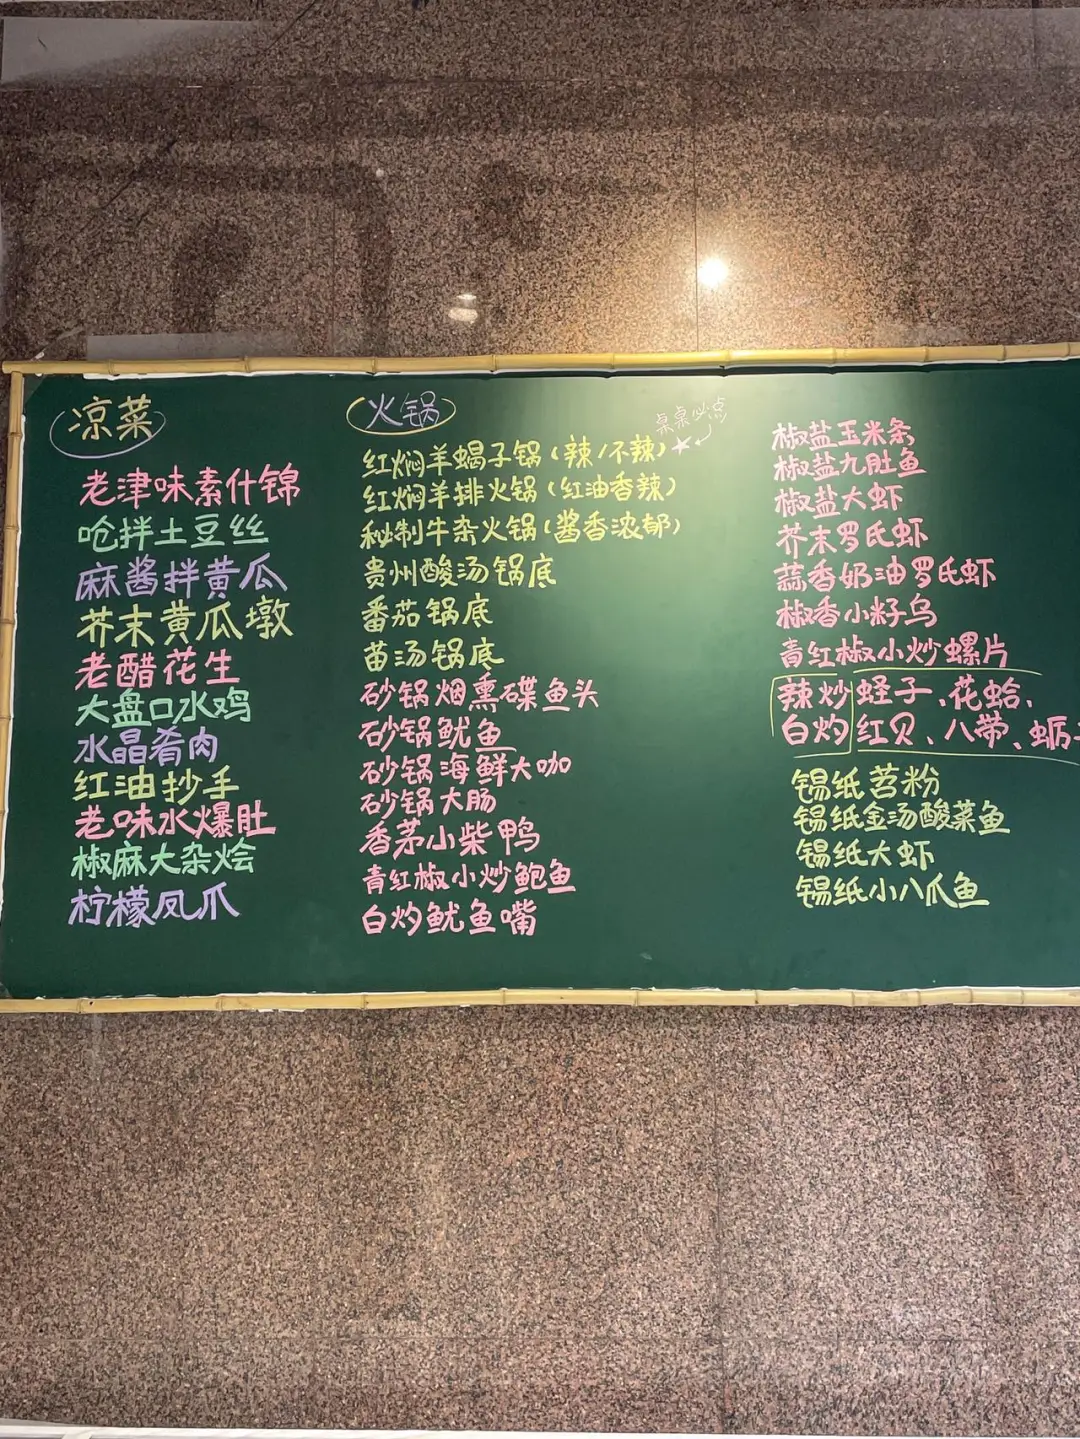 凉菜
老津味素什锦
呛拌土豆丝
麻酱拌黄瓜
芥末黄瓜墩
老醋花生
大盘口水鸡
水晶肴肉
红油抄手
老味水爆肚
椒麻大杂烩
柠檬凤爪
火锅
桌桌必点
红焖羊蝎子锅(辣/不辣)
红焖羊排火锅(红油香辣)
秘制牛杂火锅(酱香浓郁)
贵州酸汤锅底
番茄锅底
苗汤锅底
砂锅烟熏碟鱼头
砂锅鱿鱼
砂锅海鲜大咖
砂锅大肠
香茅小柴鸭
青红椒小炒鲍鱼
白灼鱿鱼嘴
椒盐玉米条
椒盐九肚鱼
椒盐大虾
芥末罗氏虾
蒜香奶油罗氏虾
椒香小籽乌
青红椒小炒螺片
辣炒 蛏子、花蛤、
白灼 红贝、八带、蛎
锡纸苕粉
锡纸金汤酸菜鱼
锡纸大虾
锡纸小八爪鱼